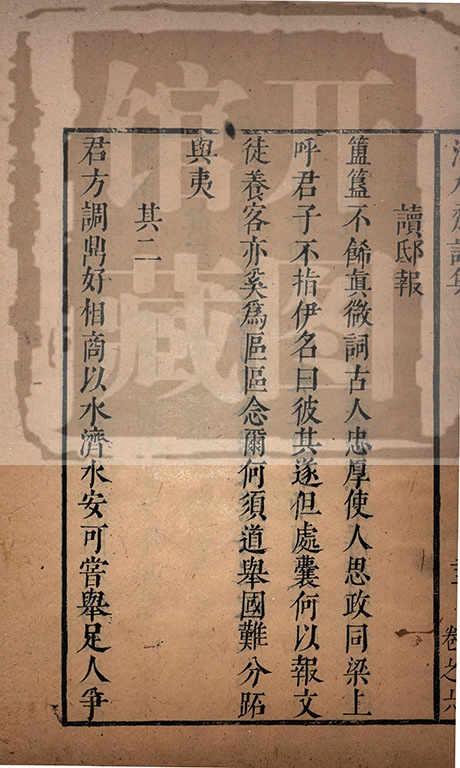 卷之六
讀邸報
簠簋不餙眞微詞古人忠厚使人思政同梁上
呼君子不指伊名曰彼其遂但處囊何以報文
徒養客亦奚爲區區念爾何須道舉國難分跖
與夷
其二
君方調鼎好相商以水濟水安可嘗舉足人爭
开图
馆藏